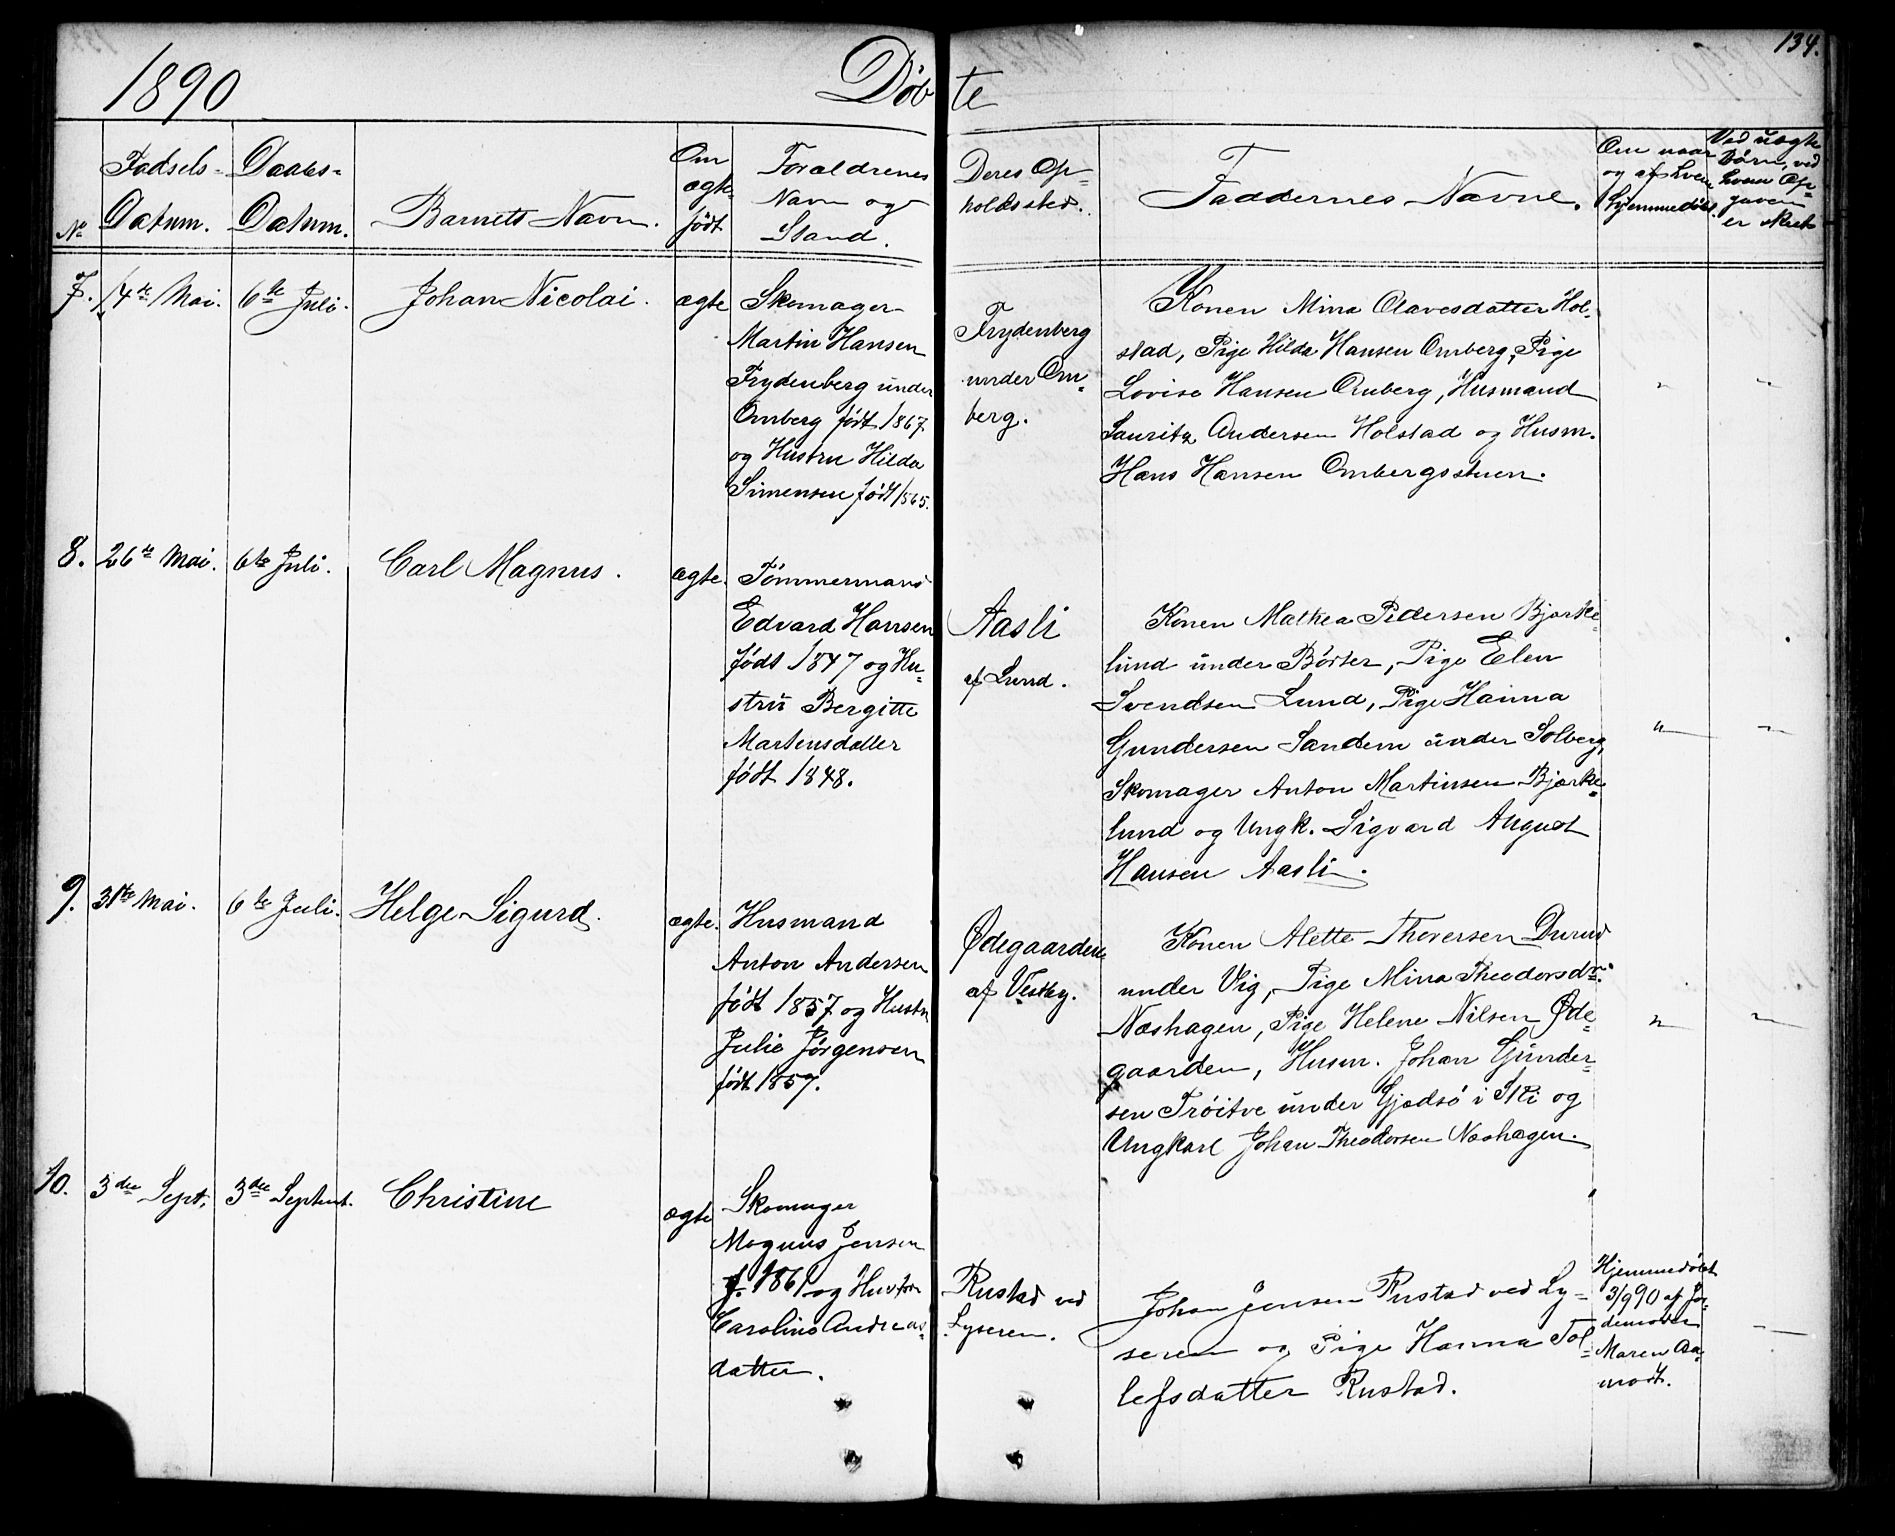 134.
1890
Døbte
No
Fødsels-
Datum.
Daabs-
Datum.
Barnets Navn.
Om
ægte
født
Forældrenes
Navn og
Stand.
Deres Op-
holdssted.
Faddernes Navne.
Om naar
og af hvem
hjemmedøbt.
Ved uægte
Børn, ved
hvem Op-
gaven
er skeet
7. 14de Mai. 6te Juli. Johan Nicolai. ægte
Skomager
Martin Hansen
Frydenberg under
Omberg født 1867
og Hustru Hilda
Simensen født 1865.
Frydenberg
under Om-
berg.
Konen Mina Olavesdatter Hol-
stad, Pige Hilda Hansen Omberg, Pige
Lovise Hansen Omberg, Husmand
Lauritz Andersen Holstad og Husm.
Hans Hansen Ombergsstuen.
" "
8. 26de Mai. 6te Juli. Carl Magnus. ægte.
Tømmermand
Edvard Hansen
født 1847 og Hu-
stru Bergitte
Martensdatter
født 1848.
Aasli
af Lund.
Konen Mathea Pedersen Bjørke-
lund under Børter, Pige Elen
Svendsen Lund, Pige Hanna
Gundersen Sandem under Solberg,
Skomager Anton Martinsen Bjørke-
lund og Ungk. Sigvard August
Hansen Aasli.
" "
9. 31te Mai. 6te Juli. Helge Sigurd. ægte.
Husmand
Anton Andersen
født 1857 og Hustru
Julie Jørgensen
født 1857.
Ødegaarden
af Vestby.
Konen Alette Thoversen Durud
under Vig, Pige Mina Theodorsdr.
Næshagen, Pige Helene Nilsen Øde-
gaarden, Husm. Johan Gunder-
sen Trøitve under Gjedsø i Ski og
Ungkarl Johan Theodorsen Næshagen.
" "
10. 3die Sept. 3die Septembr. Christine ægte
Skomager
Magnus Jensen
f. 1861 og Hustru
Caroline Andreas-
datter.
Rustad ved
Lyseren.
Johan Jensen Rustad ved Ly-
seren og Pige Hanna Tol-
lefsdatter Rustad.
Hjemmedøbt
3/9 90 af Jor-
demoder
Maren Aa-
modt.